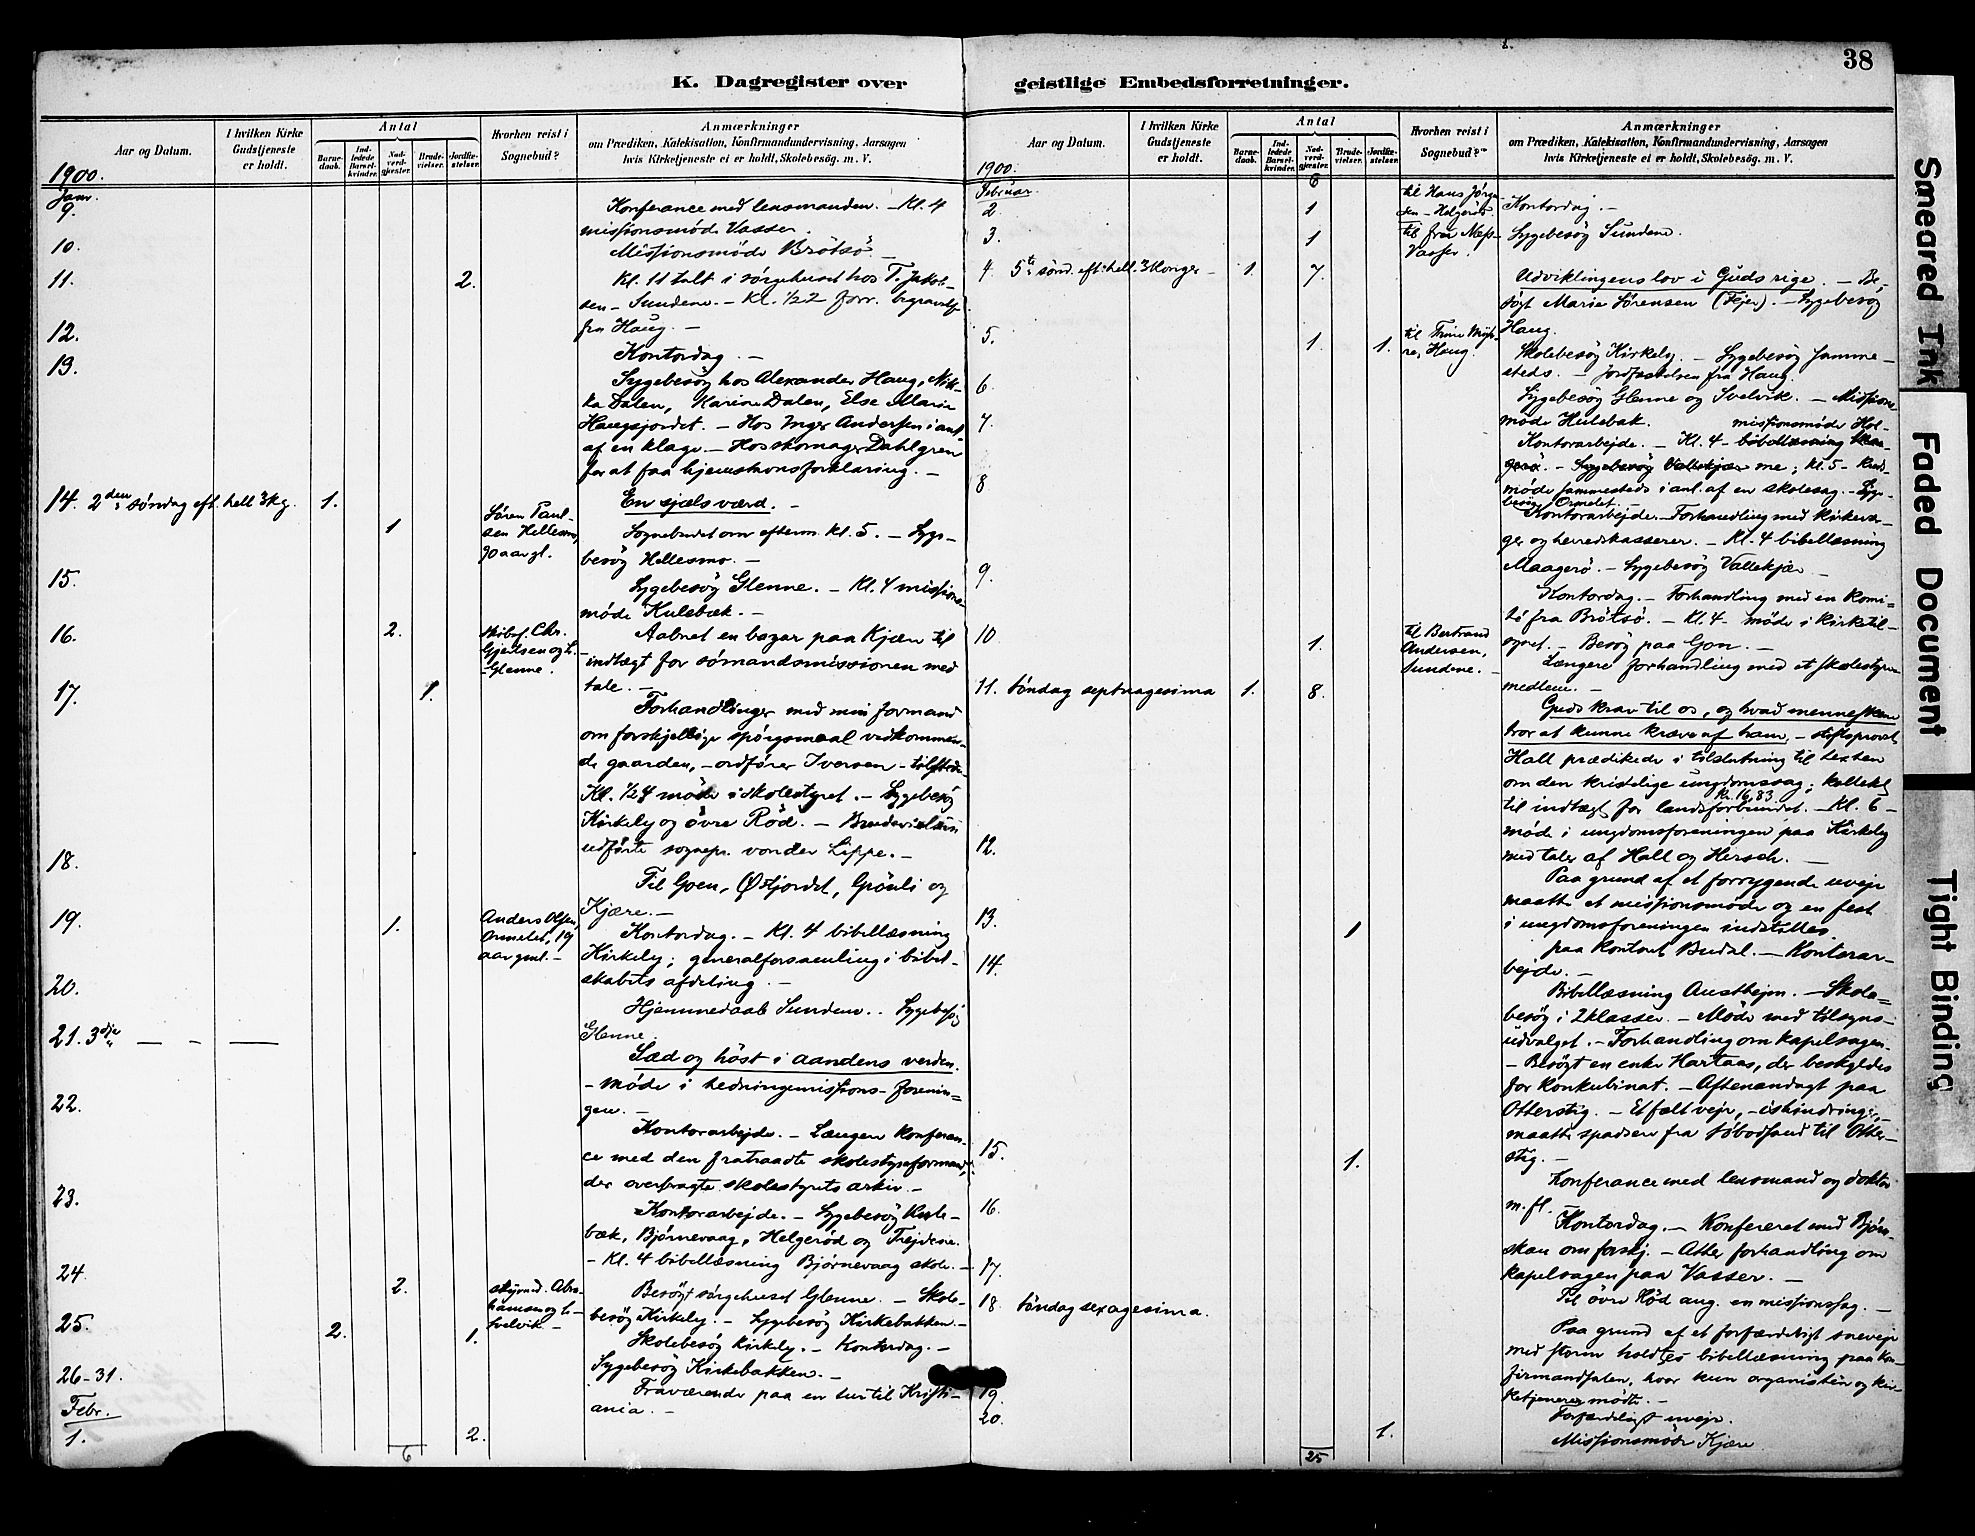 38
K. Dagregister over geistlige Embedsforretninger.
Aar og Datum.
I hvilken Kirke Gudstjeneste er holdt.
Antal
Barnedaab.
Indledede Barselkvinder.
Nadverdgjester.
Brudevielser.
Jordfæstelser.
Hvorhen reist i Sognebud?
Anmærkninger
om Prædiken, Katekisation, Konfirmandundervisning, Aarsagen
hvis Kirketjeneste ei er holdt, Skolebesög. m. V.
1900.
Janr.
9.
Konferance med lensmanden. - Kl. 4
missionsmøde Vasser.
10.
Missionsmøde Brötsö. -
11.
2.
Kl. 11 talt i sørgehuset hos T. Jakob-
sen - Sundene. - Kl. 1/2 2 forr. begravelse
fra Haug. -
12.
Kontordag. -
13.
Sygebesög hos Alexander Haug, Nik-
ka Dalen, Karine Dalen, Else Marie
Haugsjordet. - Hos Inger Andersen i anl.
af en klage. - Hos skomager Dahlgren
for at faa hjemstavnsforklaring. -
14. 2den söndag eft. hell 3 kg.
1.
1
Søren Paul-
sen Hellesmo,
90 aar gl.
En sjæls værd. -
Sognebudet om efterm. kl. 5. - Syge-
besög Hellesmo. -
15.
Sygebesög Glenne. - Kl. 4 missions-
møde Hulebæk. -
16.
2.
Chr.
Gjertsen og
- Glenne.
Aabnet en bazar paa Kjære til
indtægt for sømandsmissionen med
tale. -
17.
1.
Forhandlinger med min formand
om forskjellige spörgsmaal vedkommen-
de gaarden, - ordfører Iversen - tilstede.
Kl. 1/2 4 møde i skolestyret. - Sygebesög
Kirkely og övre Röd. - Brudevielsen
udførte sognepr. von der Lippe. -
18.
Til Goen, Østjordet, Grönli og
Kjære. -
19.
1.
Anders Olsen,
Ormelet, 19
aar gml. -
Kontordag. - Kl. 4 bibellæsning
Kirkely; generalforsamling i bibel-
skabets afdeling. -
20.
Hjemmedaab Sundene. Sygebesög
Glenne.
21. 3dje " - - -
Sæd og höst i aandens verden.
- Møde i hedningemissions-forenin-
gen. -
22.
Kontorarbejde. - Længere konferan-
ce med den fratraadte skolestyreformand,
der overbragte skolestyrets arkiv. -
23.
Kontorarbejde. - Sygebesög Hule-
bæk, Bjørnevaag, Helgerød og Trejdene.
- Kl. 4 bibellæsning Bjørnevaag skole. -
24.
2.
Abra-
hamsen og
Svelvik -
Besögt sørgehuset Glenne. - Skole-
besög Kirkely. - Sygebesög Kirkebakken. -
25.
2.
1.
Skolebesög Kirkely. - Kontordag. -
Sygebesög Kirkebakken. -
26-31.
Fraværende paa en tur til Kristi-
ania. -
Febr.
1.
2.
6
Aar og Datum.
I hvilken Kirke Gudstjeneste er holdt.
Antal
Barnedaab.
Indledede Barselkvinder.
Nadverdgjester.
Brudevielser.
Jordfæstelser.
Hvorhen reist i Sognebud?
Anmærkninger
om Prædiken, Katekisation, Konfirmandundervisning, Aarsagen
hvis Kirketjeneste ei er holdt, Skolebesög. m. V.
1900.
Februar.
6
2.
1
til Hans Jørgen-
sen - Helgerød.
Kontordag. -
3.
1
til fru
Vasser.
Sygebesög Sundene.
4. 5te sönd. eft. hell. 3 Konger -
1.
7.
Udviklingens lov i Guds rige. - Be-
søgt Marie Sørensen (Fejer). - Sygebesög
Haug.
5.
1.
1.
til Trine
Haug.
Skolebesög Kirkely. - Sygebesög samme-
steds. - Jordfæstelsen fra Haug.
6
Sygebesög Glenne og Svelvik. - Missions-
møde Hulebak.
7.
missionsmøde Hol-
Kontorarbejde. - Kl. 4 - bibellæsning
Sygebesög Vallekjær kl. 5 -
møde sammesteds i anl. af en skolesag. - Syge-
besög Ormelet. -
8
Kontorarbejde. - Forhandling med kirkevær-
ger og herredskasserer. - Kl. 4 bibellæsning
Maagerö. - Sygebesög Vallekjær -
9.
Kontordag. - Forhandling med en komi-
té fra Brötsö. - Kl. 4 - møde i kirketil-
synet. - Besög paa Gon. -
10
1.
til Bertrand
Andersen,
Sundene. -
Længere forhandling med et skolestyre-
medlem. -
11. Söndag septuagesima
1.
8.
Guds krav til os, og hvad menneskene
tror at kunne kræve af ham, - stiftsprovst
Hall prædikede i tilslutning til texten
om den kristelige ungdomssag; kollekt
til indtægt for landsforbundet. - Kl. 6 -
Kr. 16,83
møde i ungdomsforeningen paa Kirkely
med taler af Hall og Hersch. -
12.
Paa grund af et forrygende uvejr
maatte et missionsmøde og en fest
i ungdomsforeningen indstilles
13.
1
paa kontoret Budal. - Kontorar-
bejde. -
14.
Bibellæsning Austhejm. - Skole-
besög i 2 klasser. - Møde med tilsyns-
udvalget. - Forhandling om kapelsagen.
- Besögt en enke Hartaas, der beskyldes
for konkubinat. - Aftenandagt paa
Otterstig. - Et fælt vejr, - ishindringer,
maatte spadsere fra Søbodsand til Otter-
stig. -
15.
1.
Konferance med lensmand og doktor
m. fl.
16.
Kontordag. - Konfereret med Bjön-
skau om forskj. - Atter forhandling om
kapelsagen paa Vasser. -
17.
Til övre Röd ang. en missionssag. -
18. Söndag sexagesima.
Paa grund af et forfærdeligt snevejr
med storm holdtes bibellæsning paa kon-
firmandsalen, hvor kun organisten og kir-
ketjeneren mødte. -
19.
Forfærdeligt uvejr.
20.
1.
Missionsmøde Kjære
25
Smeared Ink
Faded Document
Tight Binding